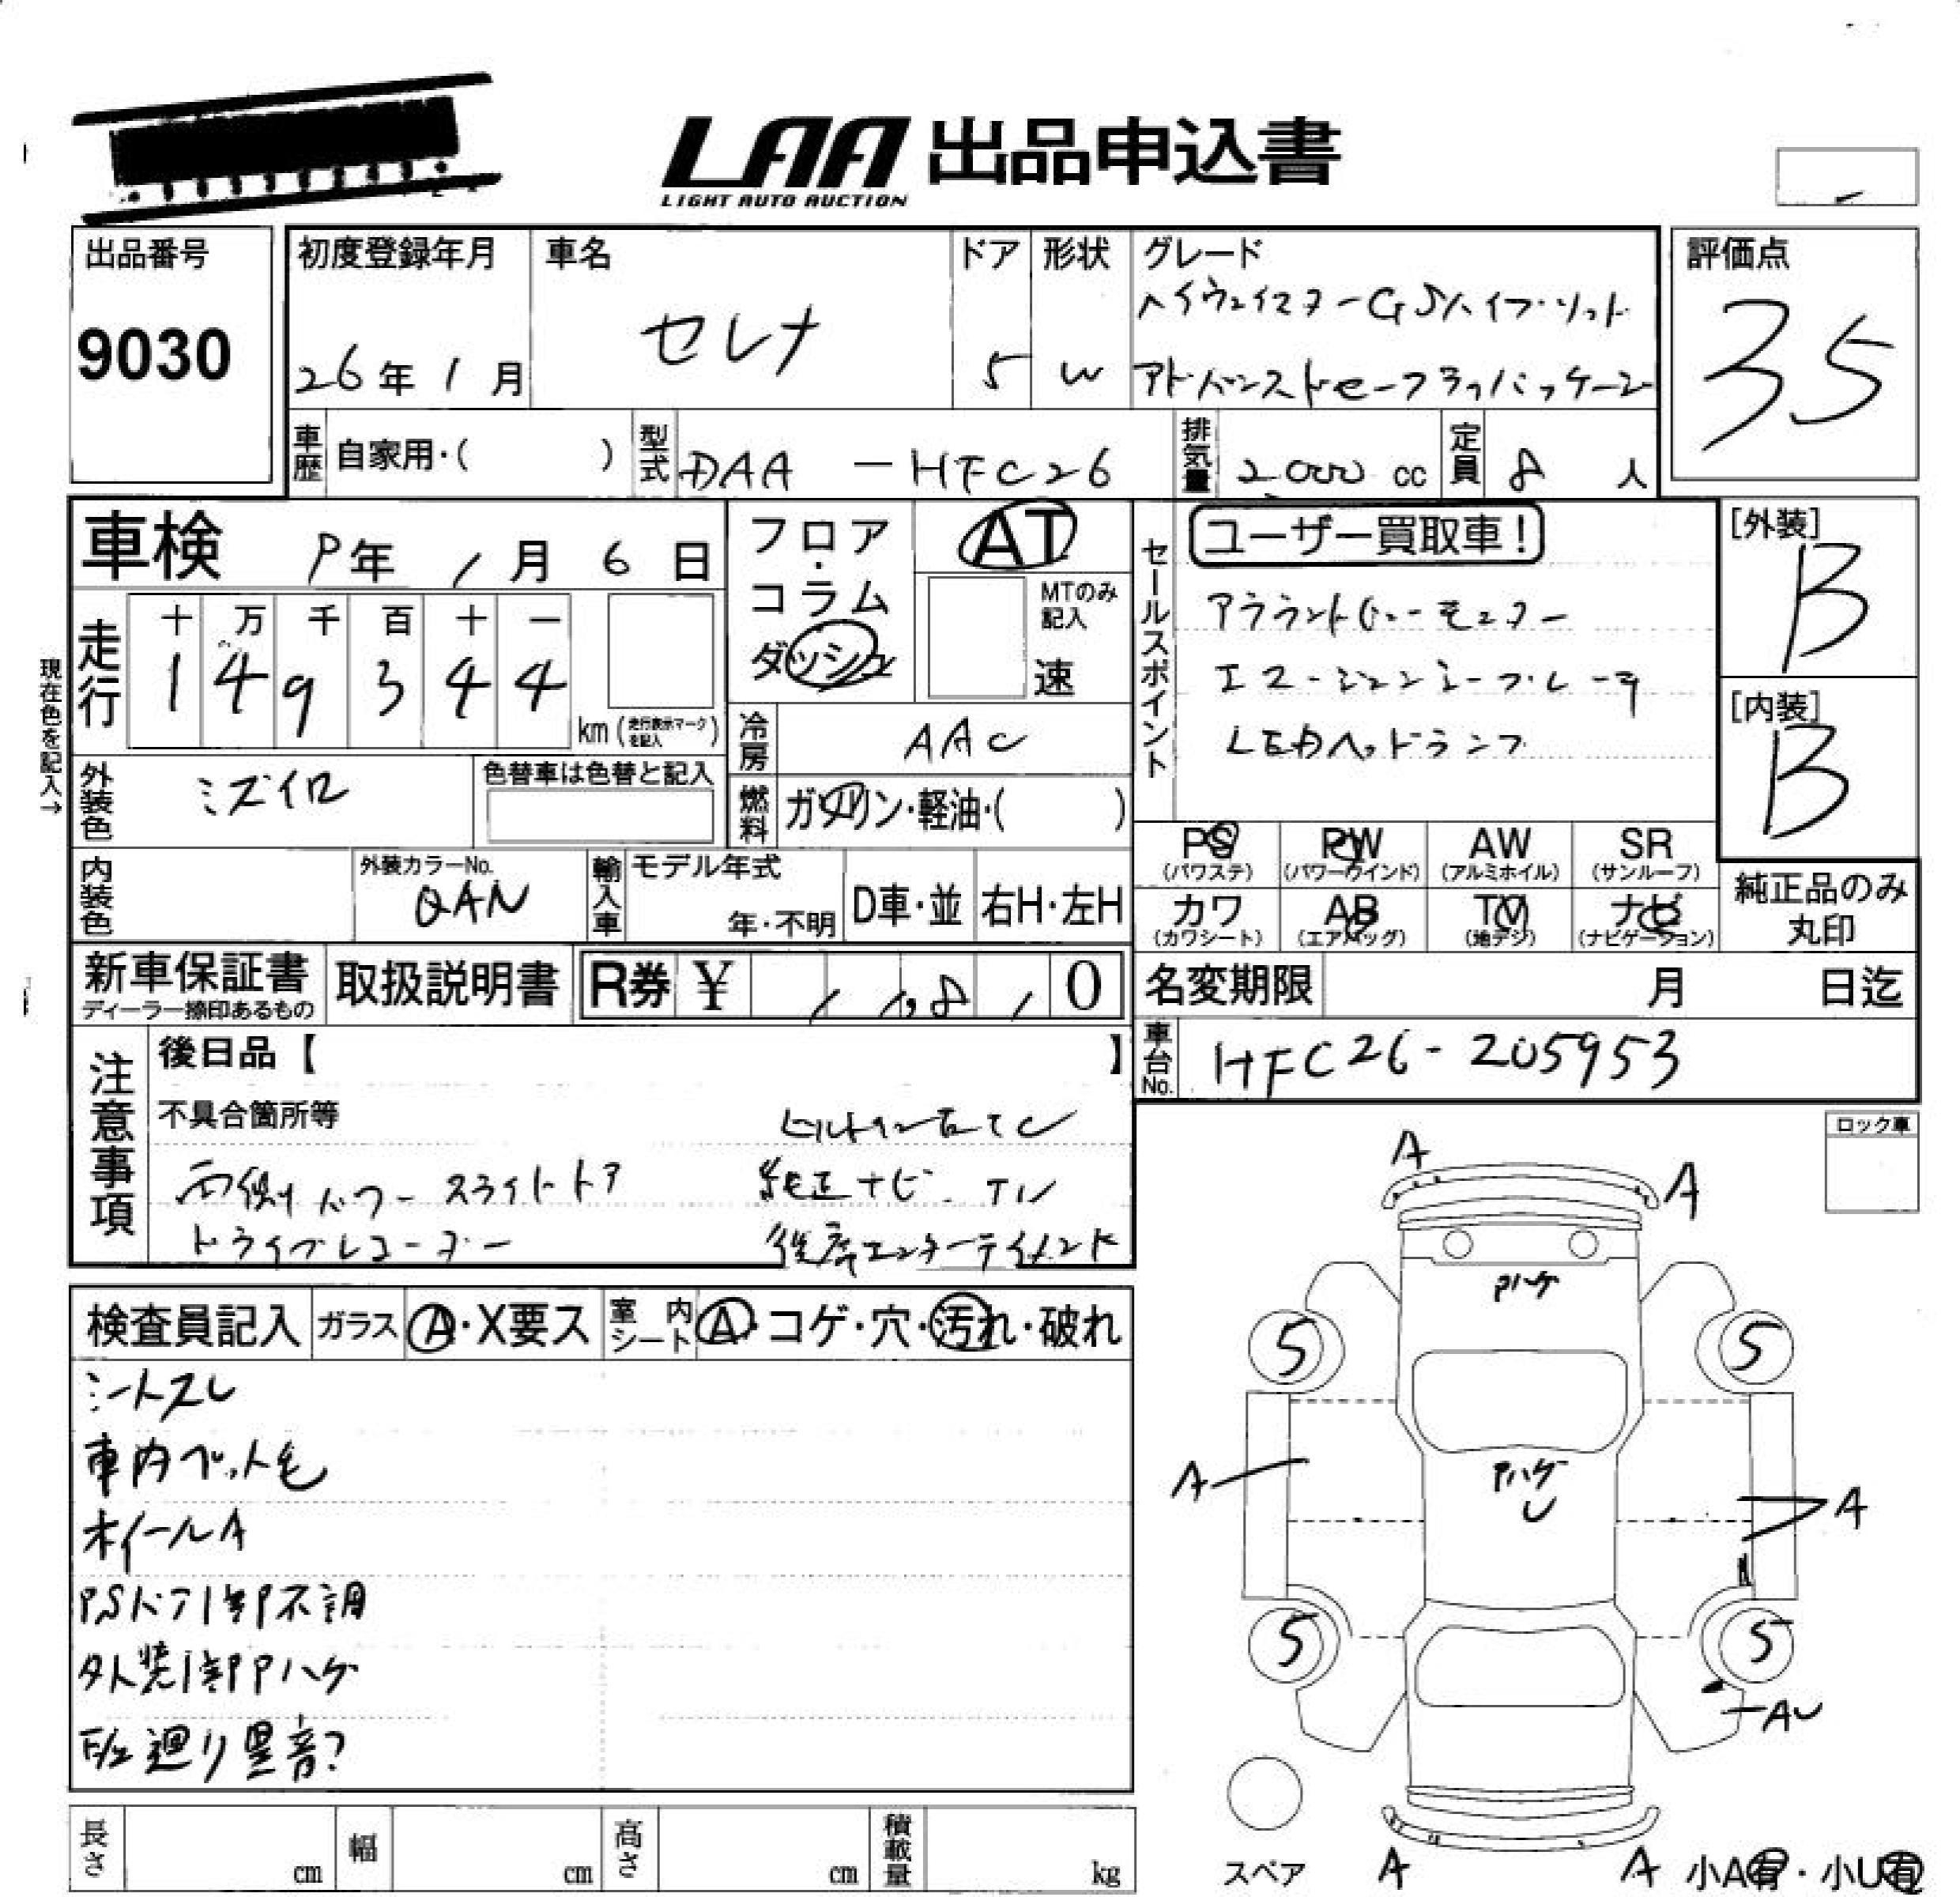 LAA 出品申込書
LIGHT AUTO AUCTION
出品番号
9030
初度登録年月
26年 1月
車名
セレナ
ドア
5
形状
W
グレード
ハイウェイスターGSハイブリッド
アドバンスドセーフティパッケージ
評価点
35
車歴 自家用・( )
型式 DAA-HFC26
排気量 2000 cc
定員 8 人
車検 9年 1月 6日
フロア・コラム・ダッシュ
AT
MTのみ記入
速
セールスポイント
ユーザー買取車!
アラウンドビューモニター
エマージェンシーブレーキ
LEDヘッドランプ
[外装]
B
[内装]
B
現在色を記入→
走行
十 万 千 百 十 一
1 4 9 3 4 4
km (走行表示マークを記入)
冷房 AAC
外装色 ミズイロ
色替車は色替と記入
燃料 ガソリン・軽油・( )
PS (パワステ)
PW (パワーウインド)
AW (アルミホイル)
SR (サンルーフ)
カワ (カワシート)
AB (エアバッグ)
TV (地デジ)
ナビ (ナビゲーション)
純正品のみ丸印
内装色
外装カラーNo.
QAN
輸入車 モデル年式
年・不明
D車・並
右H・左H
新車保証書
ディーラー捺印あるもの
取扱説明書
R券 ¥ 8 0
名変期限 月 日迄
車台No. HFC26-205953
注意事項
後日品【 】
不具合箇所等
ビルトインETC
両側パワースライドドア 純正ナビ TV
ドライブレコーダー 後席エンターテイメント
ロック車
検査員記入
ガラス A・X要ス
室内シート A・コゲ・穴・汚れ・破れ
シートスレ
車内ペット毛
ホイールA
PSドア1部不調
外装1部Pハゲ
廻り異音?
A
A
Pハゲ
5
5
Pハゲ
U
A
A
5
5
AU
A
A
スペア
小A有・小U有
長さ cm
幅 cm
高さ cm
積載量 kg